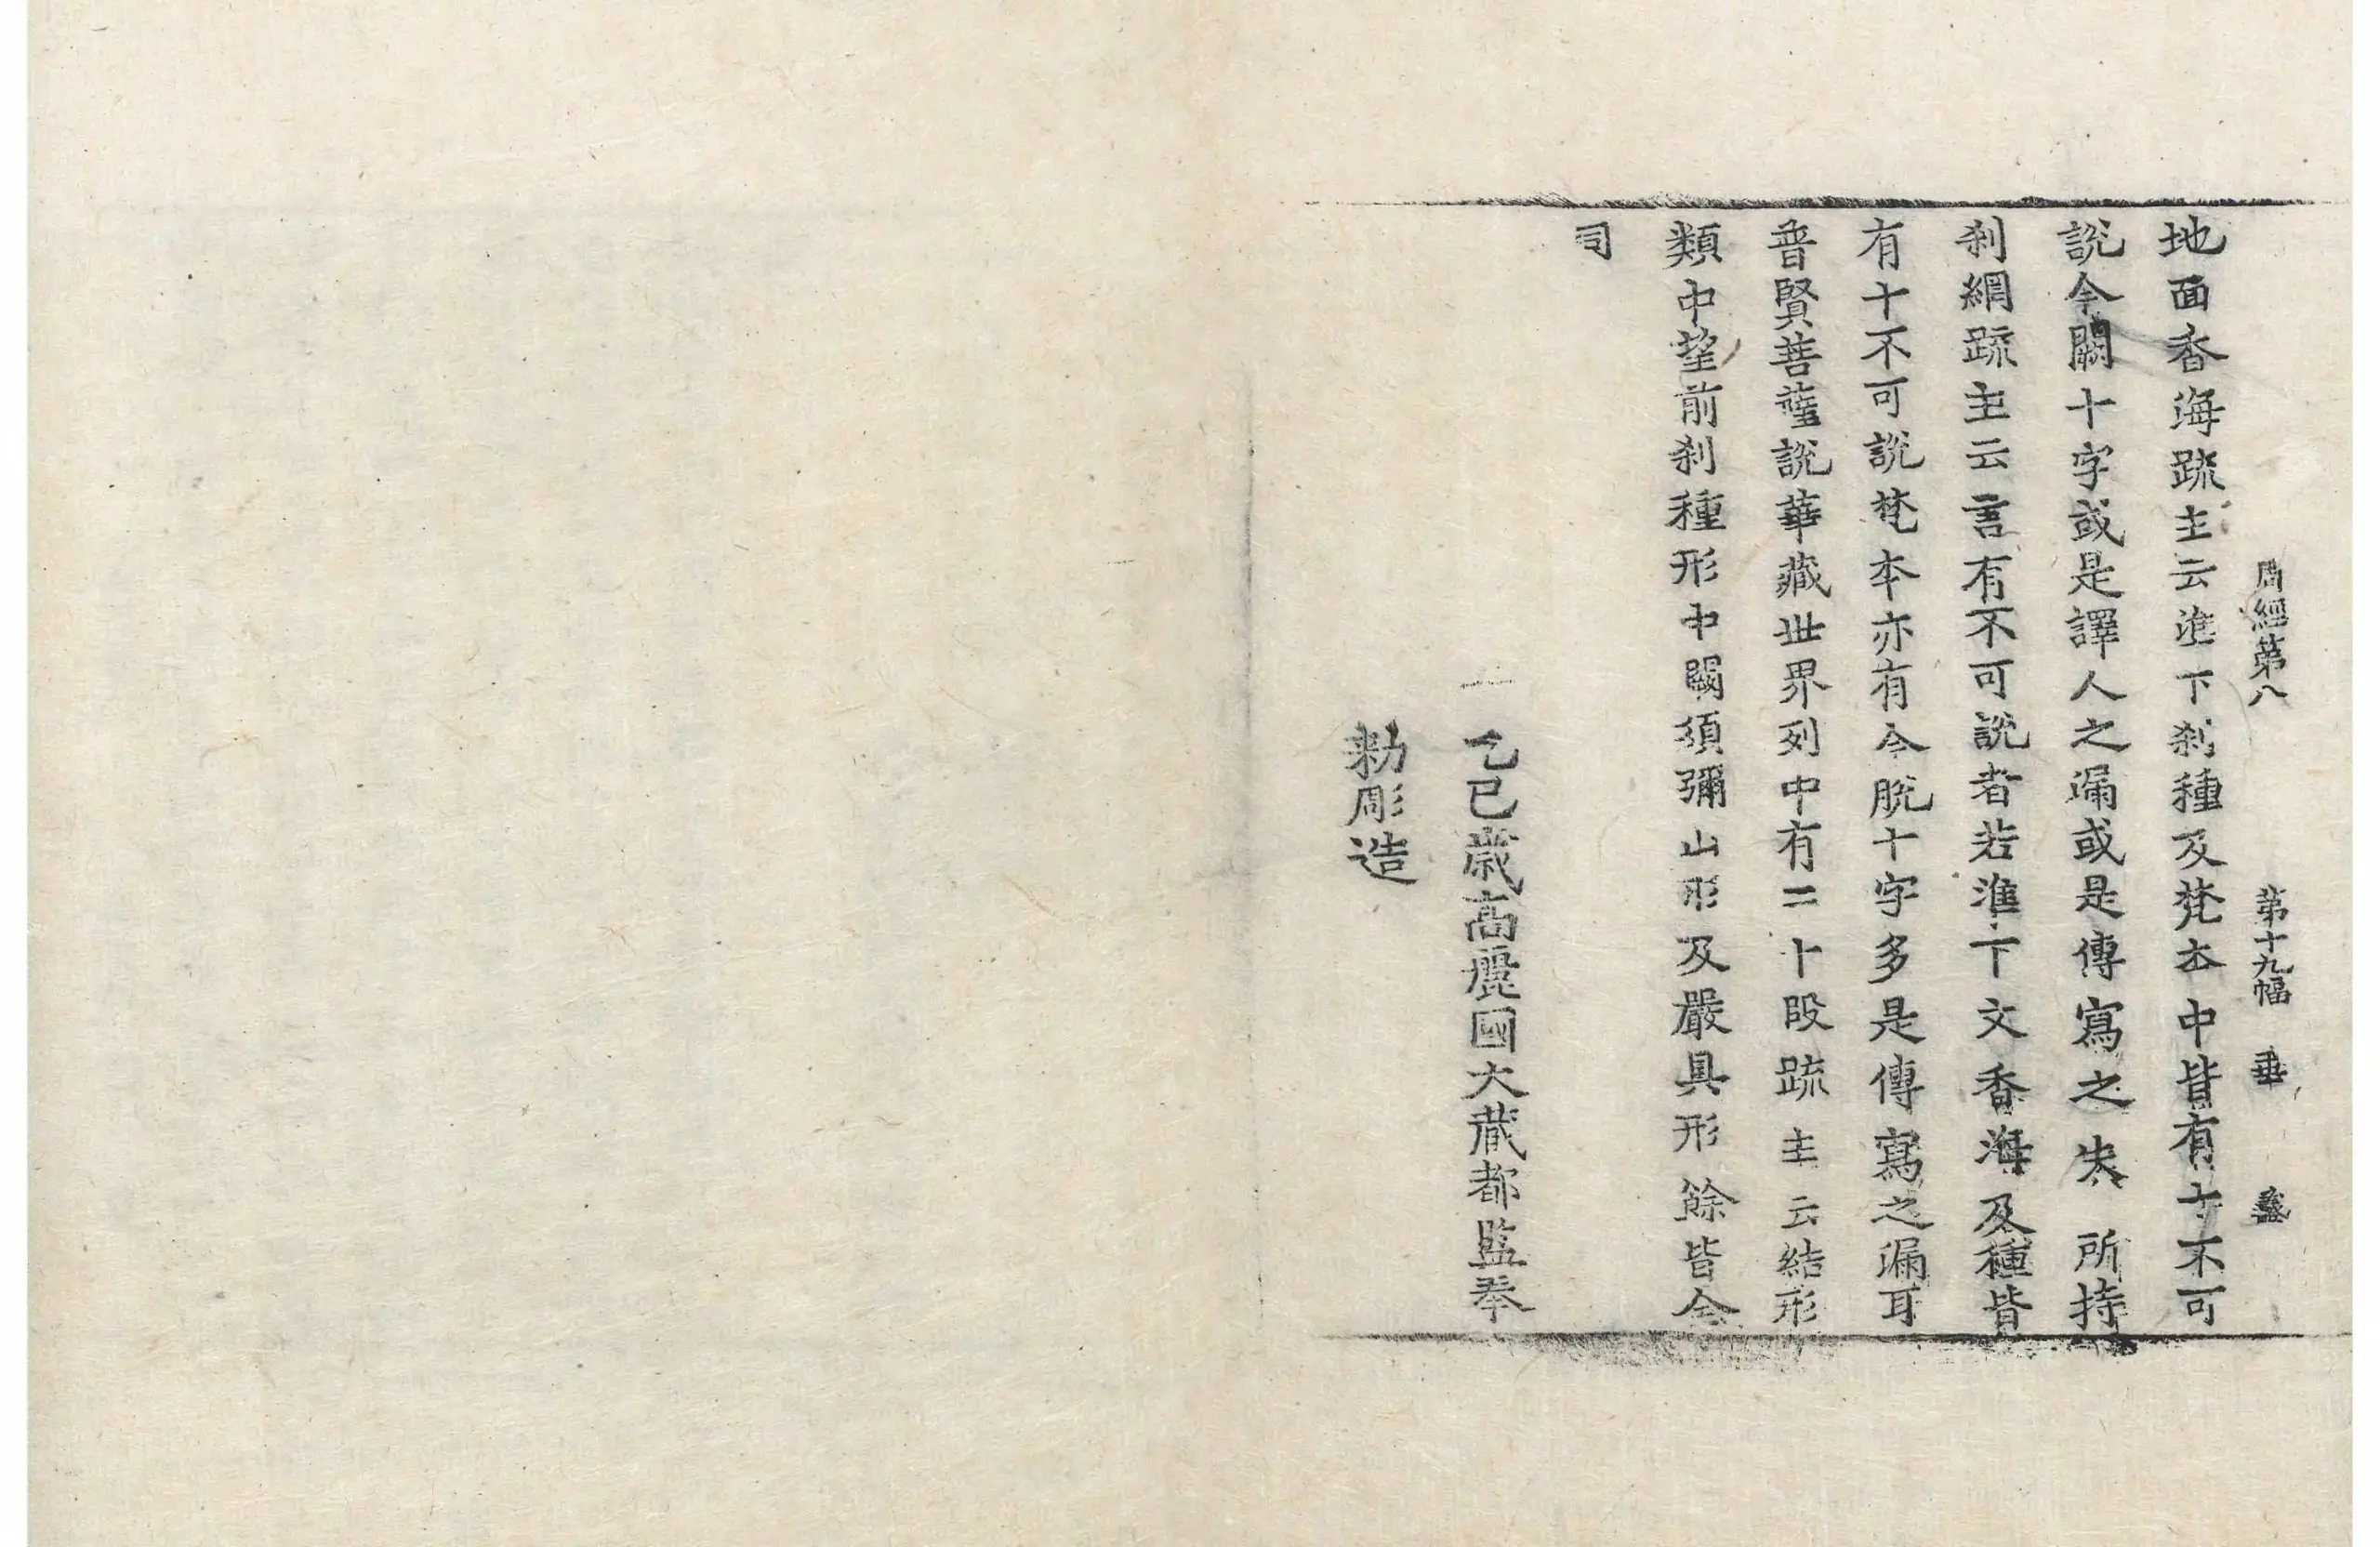 周經第八　第十九幅　垂
地面香海䟽主云准下刹種及梵本中皆有十不可
說今闕十字或是譯人之漏或是傳寫之失 所持
刹網䟽主云言有不可說者若准下文香海及種皆
有十不可說梵本亦有今脫十字多是傳寫之漏耳
普賢菩薩說華藏世界列中有二十段䟽主云結形
類中望前刹種形中闕須彌山形及嚴具形餘皆全
司
乙巳歲高麗國大藏都監奉
勑彫造